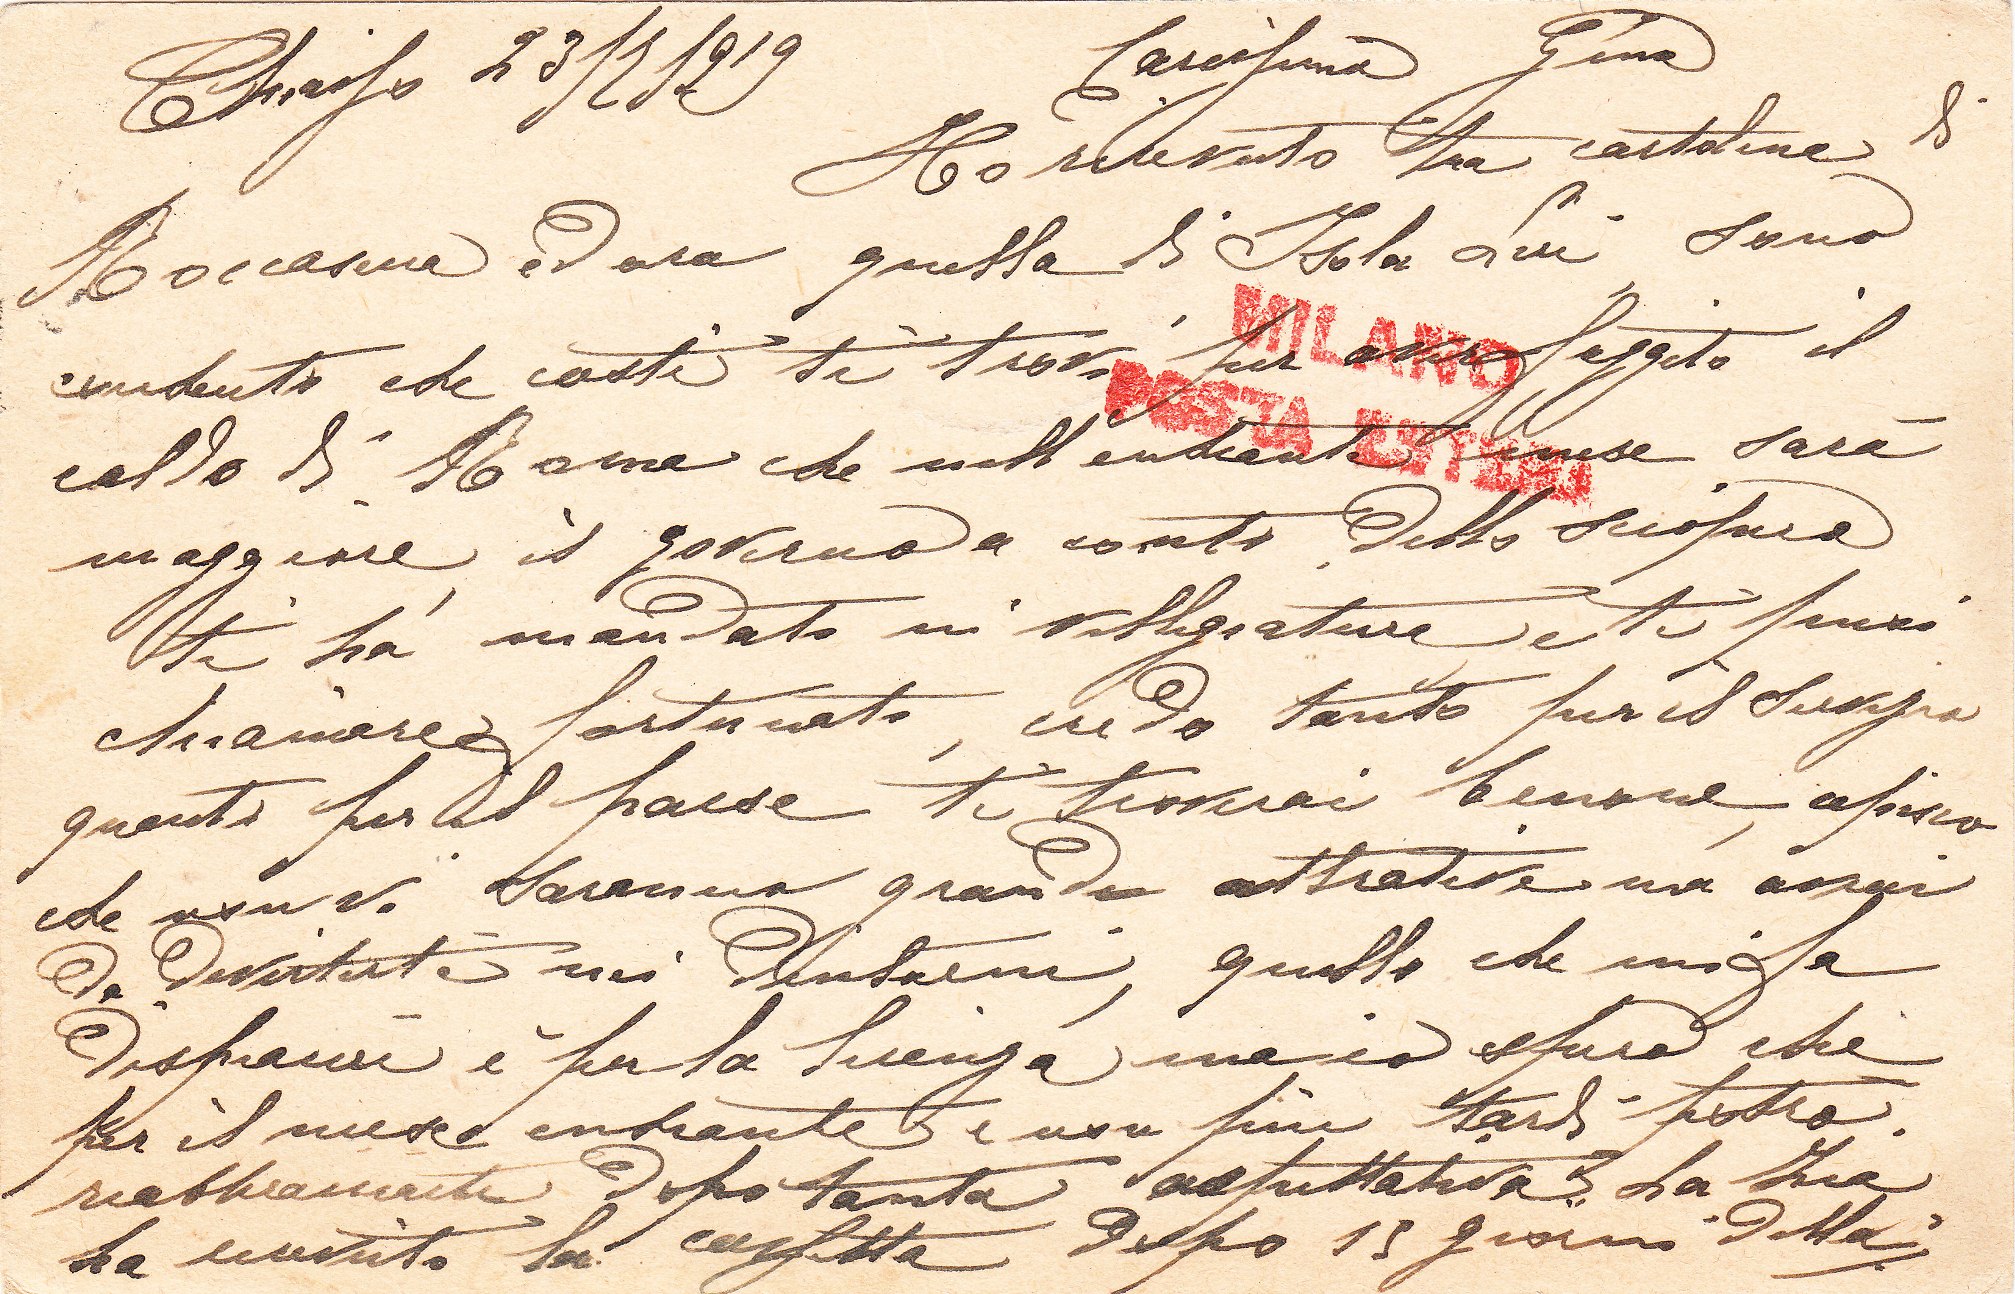 Chiasso 23/7/1919 Carissimo Gino
Ho ricevuto tua cartolina di
Roccasecca ed ora quella di Isola Liri, sono
contento che costì ti trovi per aver fuggito il
caldo di Roma che nell'entrante mese sarà
maggiore, il governo a conto dello
ti ha mandato in villegiatura e ti puoi
chiamare fortunato, credo tanto per il servizio
quanto per il paese ti troverai benone, capisco
che non vi saranno grandi attrative ma avrai
da divertirti nei dintorni, quello che mi fa
dispiacere è per la licenza ma io spero che
per il mese entrante e non più tardi potrò
riabbracciarti dopo tanta aspettativa. La Zia
ha ricevuto la dopo 15 giorni della
MILANO
POSTA ESTERA